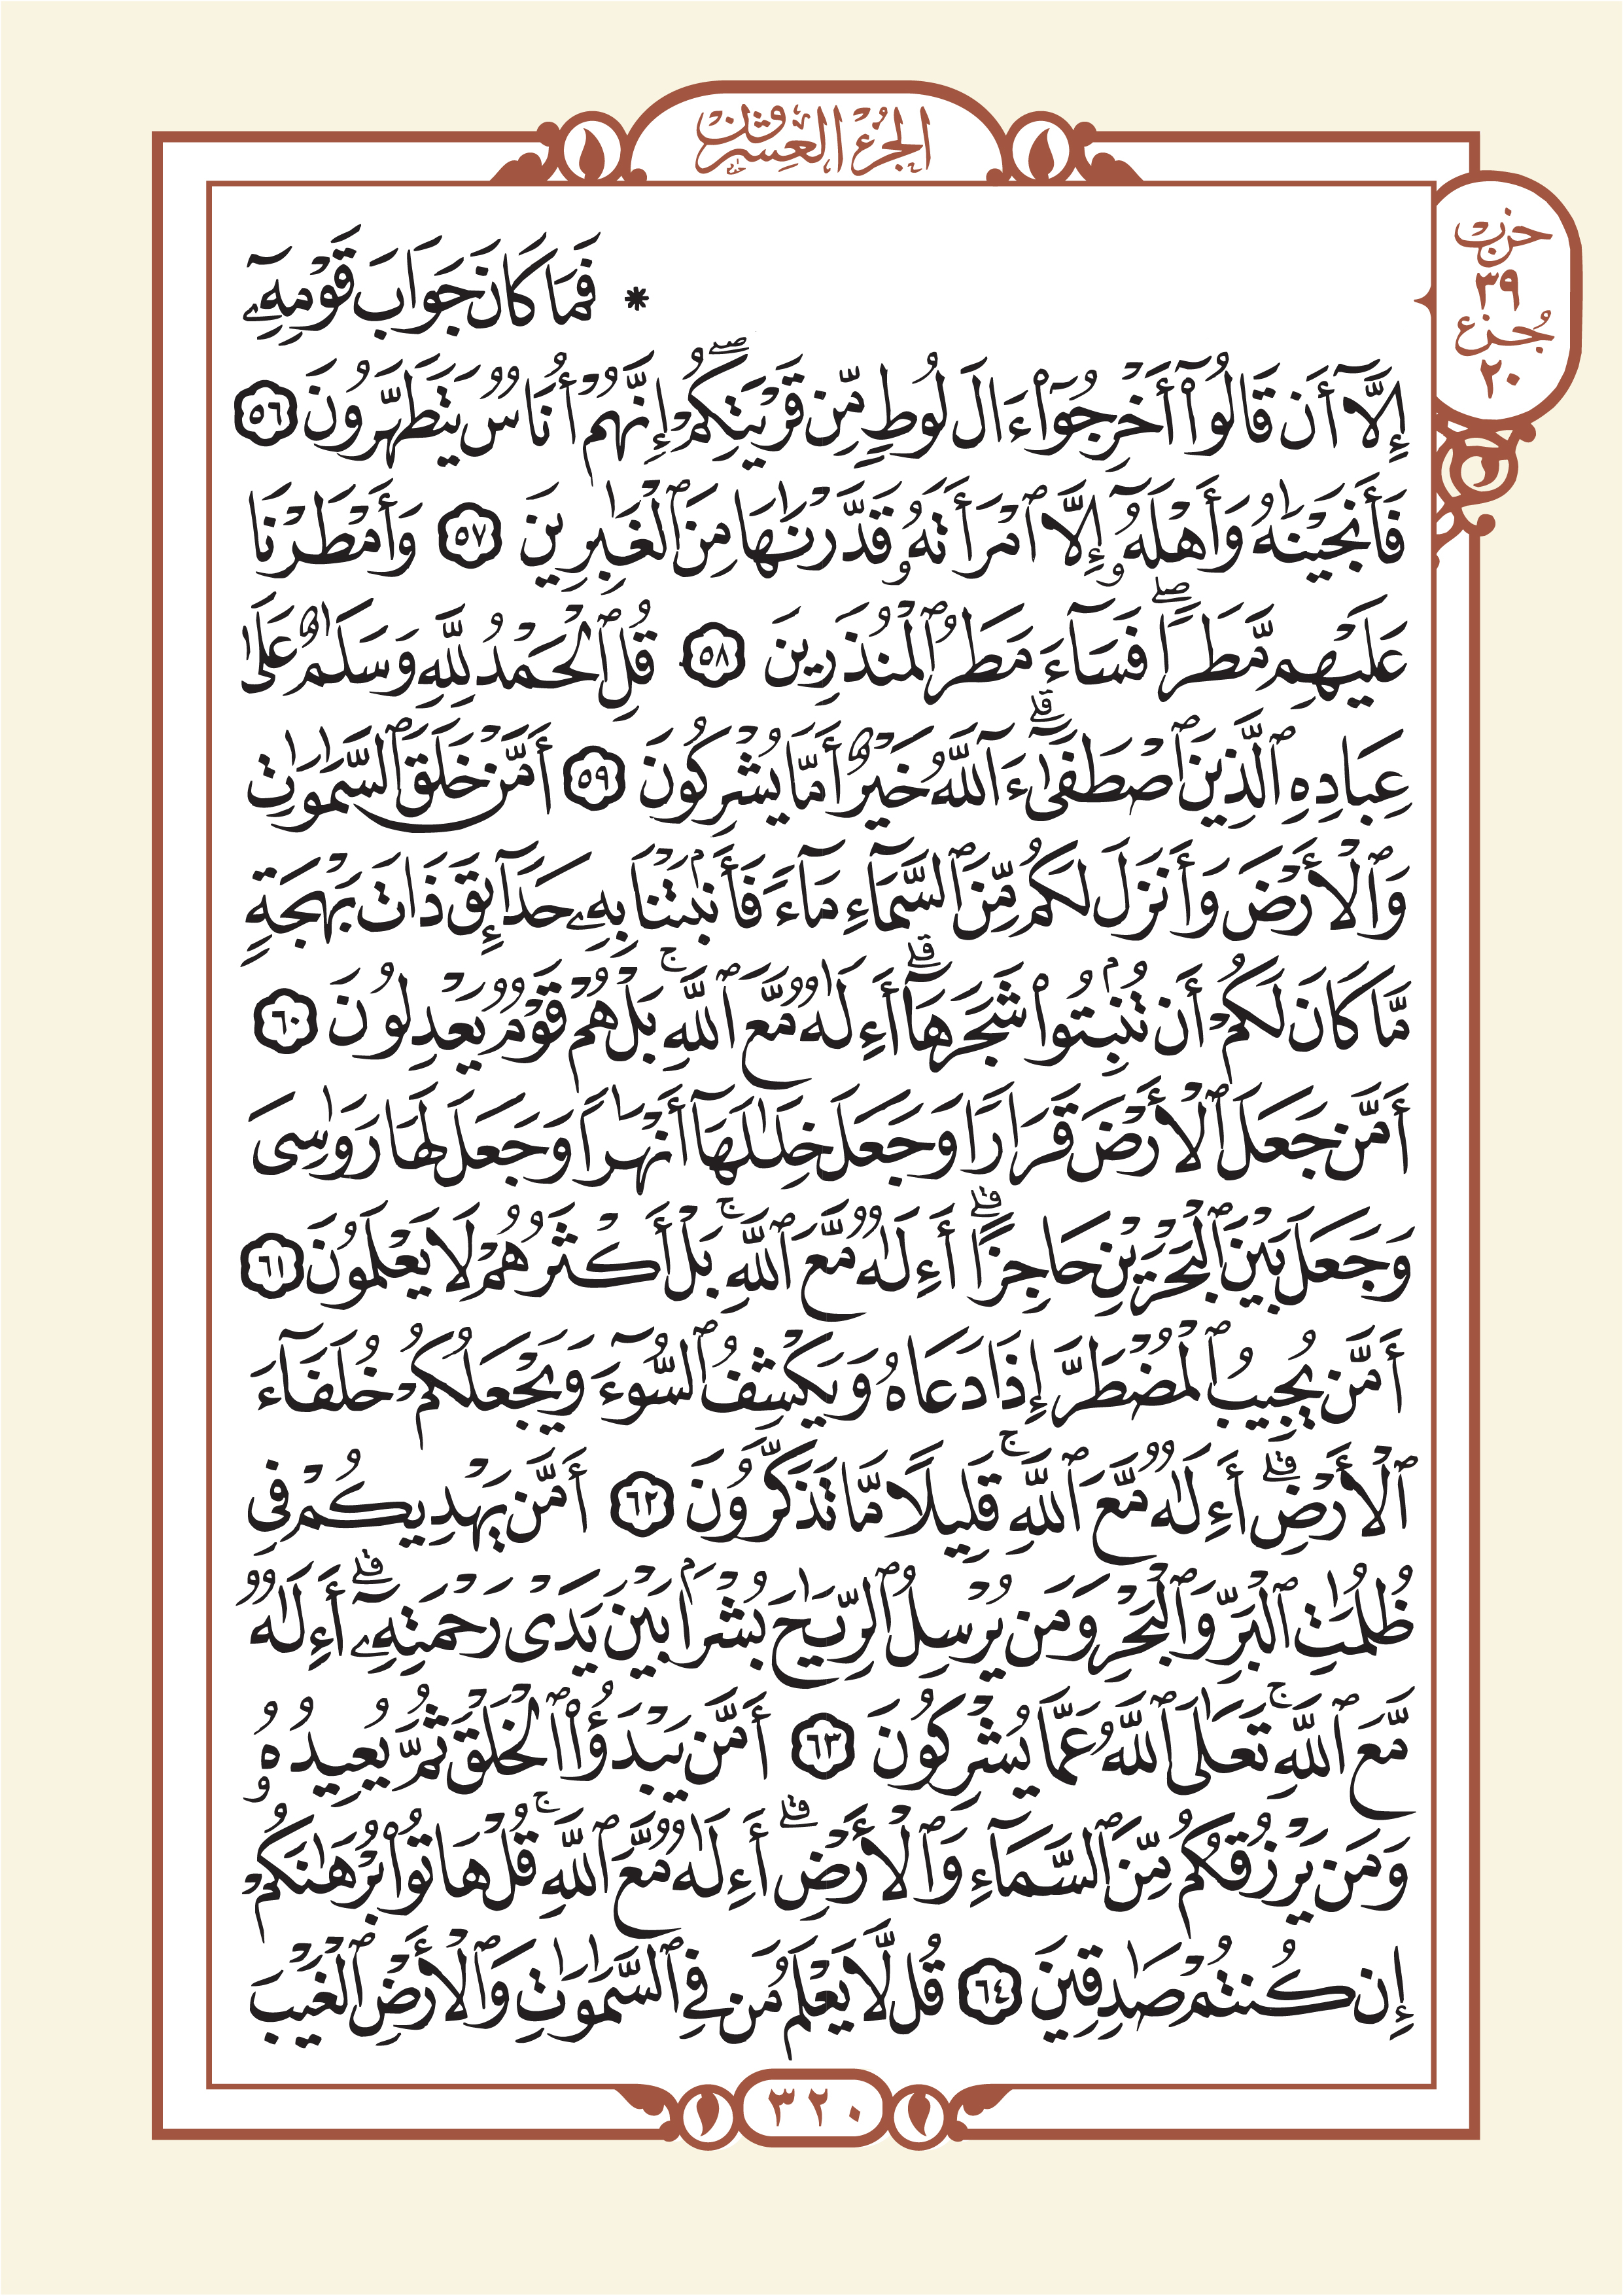 الجزء العشرون
حزب
٣٩
جزء
٢٠
* فَمَا كَانَ جَوَابَ قَوْمِهِۦٓ
إِلَّآ أَن قَالُوٓا۟ أَخْرِجُوٓا۟ ءَالَ لُوطٍ مِّن قَرْيَتِكُمْ ۖ إِنَّهُمْ أُنَاسٌ يَتَطَهَّرُونَ ٥٦
فَأَنجَيْنَٰهُ وَأَهْلَهُۥٓ إِلَّا ٱمْرَأَتَهُۥ قَدَّرْنَٰهَا مِنَ ٱلْغَٰبِرِينَ ٥٧ وَأَمْطَرْنَا
عَلَيْهِم مَّطَرًا ۖ فَسَآءَ مَطَرُ ٱلْمُنذَرِينَ ٥٨ قُلِ ٱلْحَمْدُ لِلَّهِ وَسَلَٰمٌ عَلَىٰ
عِبَادِهِ ٱلَّذِينَ ٱصْطَفَىٰٓ ۗ ءَآللَّهُ خَيْرٌ أَمَّا يُشْرِكُونَ ٥٩ أَمَّنْ خَلَقَ ٱلسَّمَٰوَٰتِ
وَٱلْأَرْضَ وَأَنزَلَ لَكُم مِّنَ ٱلسَّمَآءِ مَآءً فَأَنۢبَتْنَا بِهِۦ حَدَآئِقَ ذَاتَ بَهْجَةٍ
مَّا كَانَ لَكُمْ أَن تُنۢبِتُوا۟ شَجَرَهَآ ۗ أَءِلَٰهٌ مَّعَ ٱللَّهِ ۚ بَلْ هُمْ قَوْمٌ يَعْدِلُونَ ٦٠
أَمَّن جَعَلَ ٱلْأَرْضَ قَرَارًا وَجَعَلَ خِلَٰلَهَآ أَنْهَٰرًا وَجَعَلَ لَهَا رَوَٰسِىَ
وَجَعَلَ بَيْنَ ٱلْبَحْرَيْنِ حَاجِزًا ۗ أَءِلَٰهٌ مَّعَ ٱللَّهِ ۚ بَلْ أَكْثَرُهُمْ لَا يَعْلَمُونَ ٦١
أَمَّن يُجِيبُ ٱلْمُضْطَرَّ إِذَا دَعَاهُ وَيَكْشِفُ ٱلسُّوٓءَ وَيَجْعَلُكُمْ خُلَفَآءَ
ٱلْأَرْضِ ۗ أَءِلَٰهٌ مَّعَ ٱللَّهِ ۚ قَلِيلًا مَّا تَذَكَّرُونَ ٦٢ أَمَّن يَهْدِيكُمْ فِى
ظُلُمَٰتِ ٱلْبَرِّ وَٱلْبَحْرِ وَمَن يُرْسِلُ ٱلرِّيَٰحَ بُشْرًۢا بَيْنَ يَدَىْ رَحْمَتِهِۦٓ ۗ أَءِلَٰهٌ
مَّعَ ٱللَّهِ ۚ تَعَٰلَى ٱللَّهُ عَمَّا يُشْرِكُونَ ٦٣ أَمَّن يَبْدَؤُا۟ ٱلْخَلْقَ ثُمَّ يُعِيدُهُۥ
وَمَن يَرْزُقُكُم مِّنَ ٱلسَّمَآءِ وَٱلْأَرْضِ ۗ أَءِلَٰهٌ مَّعَ ٱللَّهِ ۚ قُلْ هَاتُوا۟ بُرْهَٰنَكُمْ
إِن كُنتُمْ صَٰدِقِينَ ٦٤ قُل لَّا يَعْلَمُ مَن فِى ٱلسَّمَٰوَٰتِ وَٱلْأَرْضِ ٱلْغَيْبَ
٣٢٠